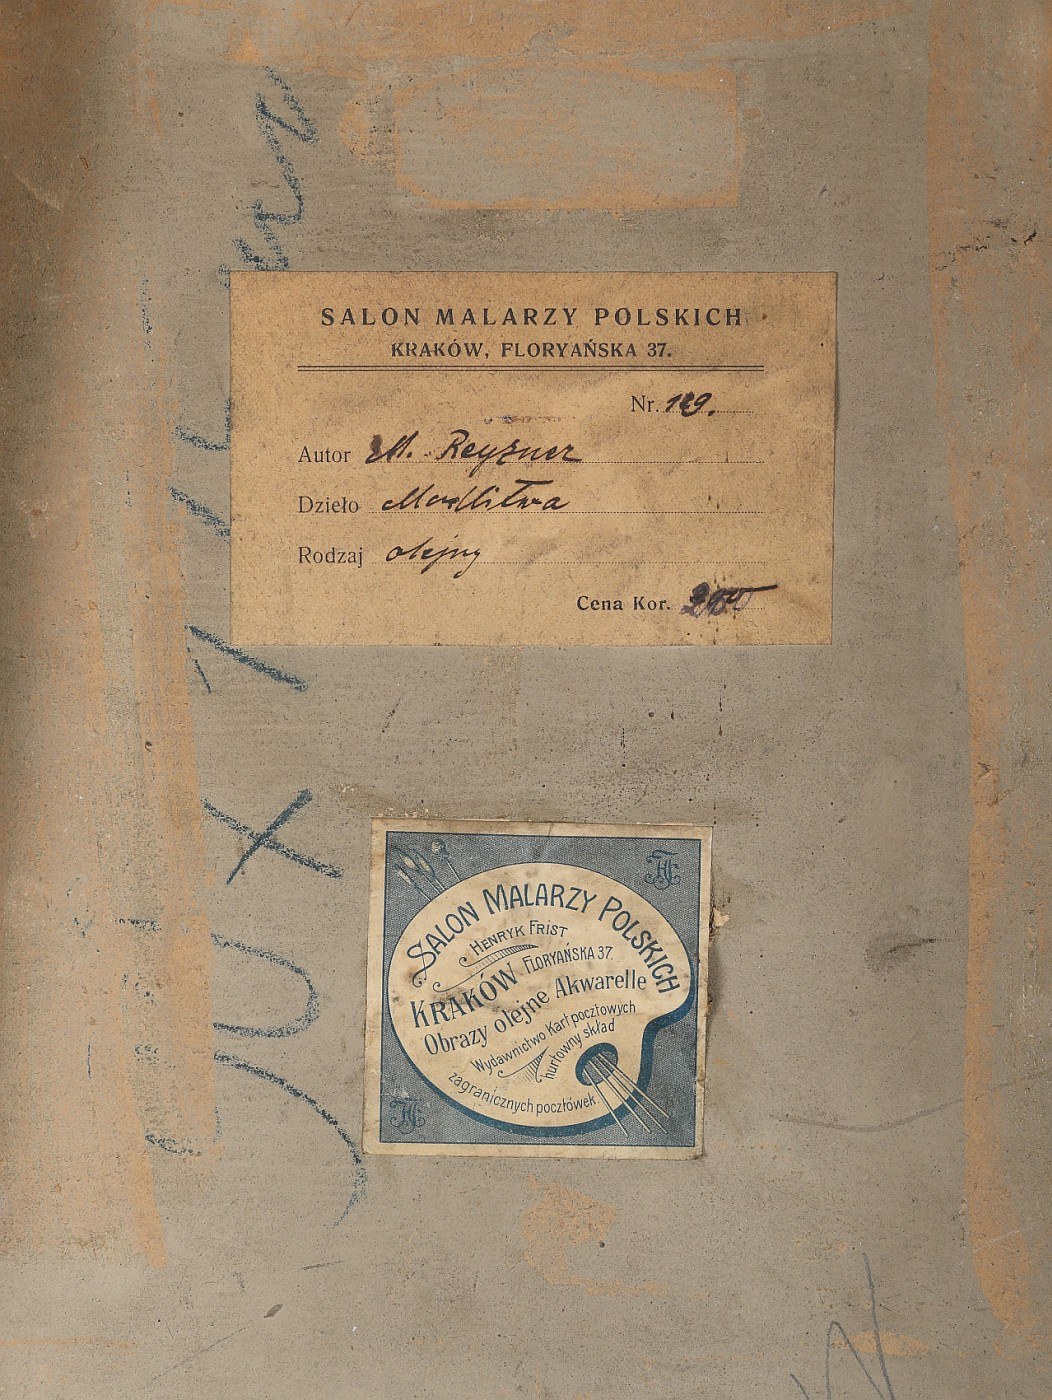 SALON MALARZY POLSKICH
KRAKÓW, FLORYAŃSKA 37.
Nr. 119.
Autor M. Reyzner
Dzieło Modlitwa
Rodzaj olejny
Cena Kor.
SALON MALARZY POLSKICH
HENRYK FRIST
KRAKÓW FLORYAŃSKA 37.
Obrazy olejne Akwarelle
Wydawnictwo Kart pocztowych
hurtowny skład
zagranicznych pocztówek